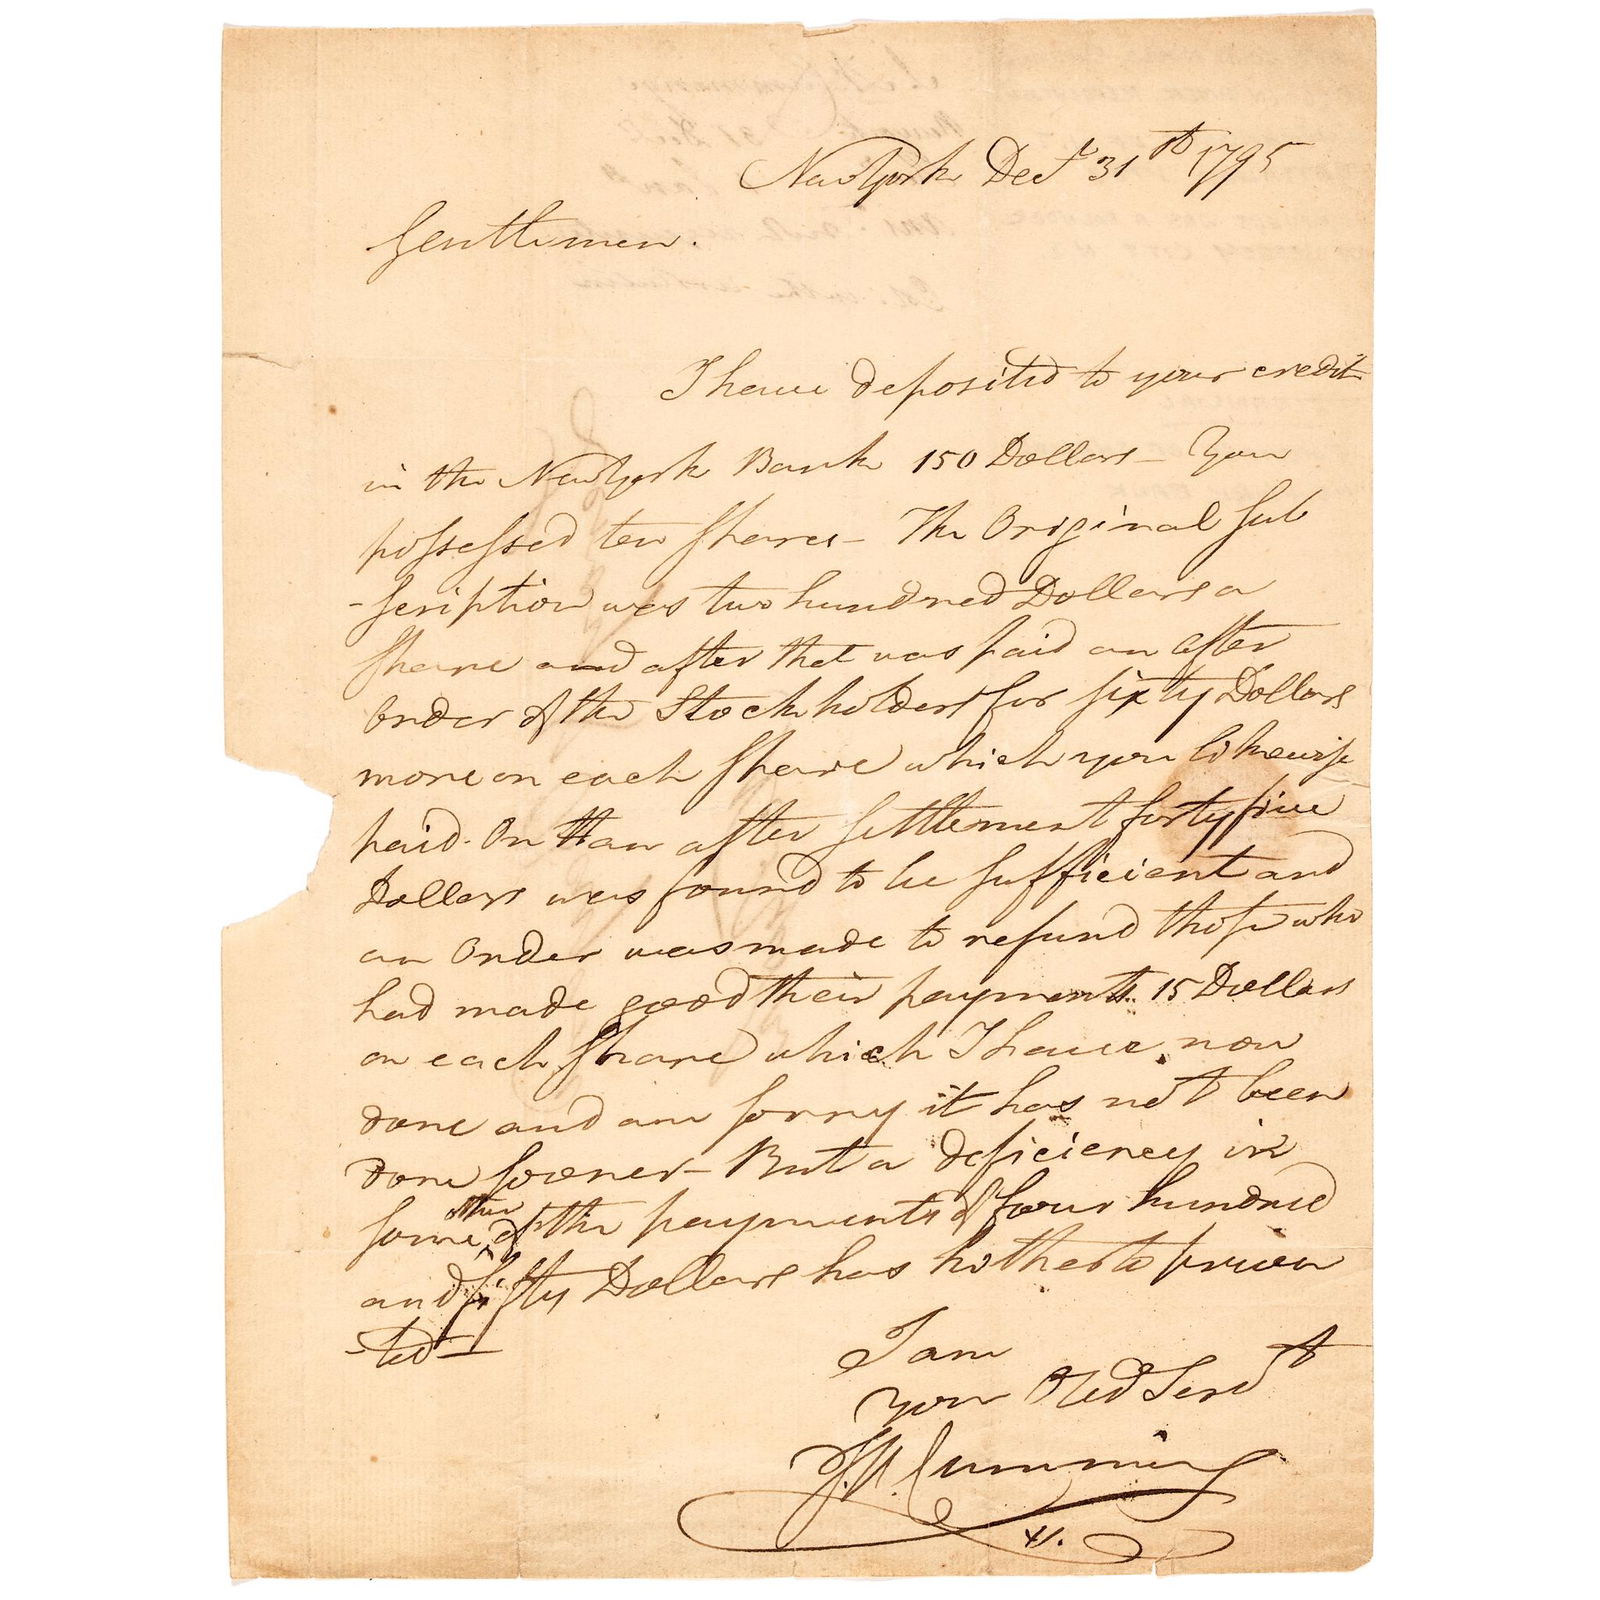 New York Decr 31st 1795
Gentlemen.
I have deposited to your credit
in the New York Bank 150 Dollars – You
possessed ten shares – The Original sub
-scription was two hundred Dollars a
share and after that was paid an after
Order of the Stockholders for sixty Dollars
more on each share which you likewise
paid. On an after settlement forty five
Dollars was found to be sufficient and
an Order was made to refund those who
had made good their payments. 15 Dollars
on each share which I have now
done and am sorry it has not been
done sooner – But a deficiency in
some other of the payments of four hundred
and fifty Dollars has hitherto preven
-ted –
I am
your Obed Servt
Cumming